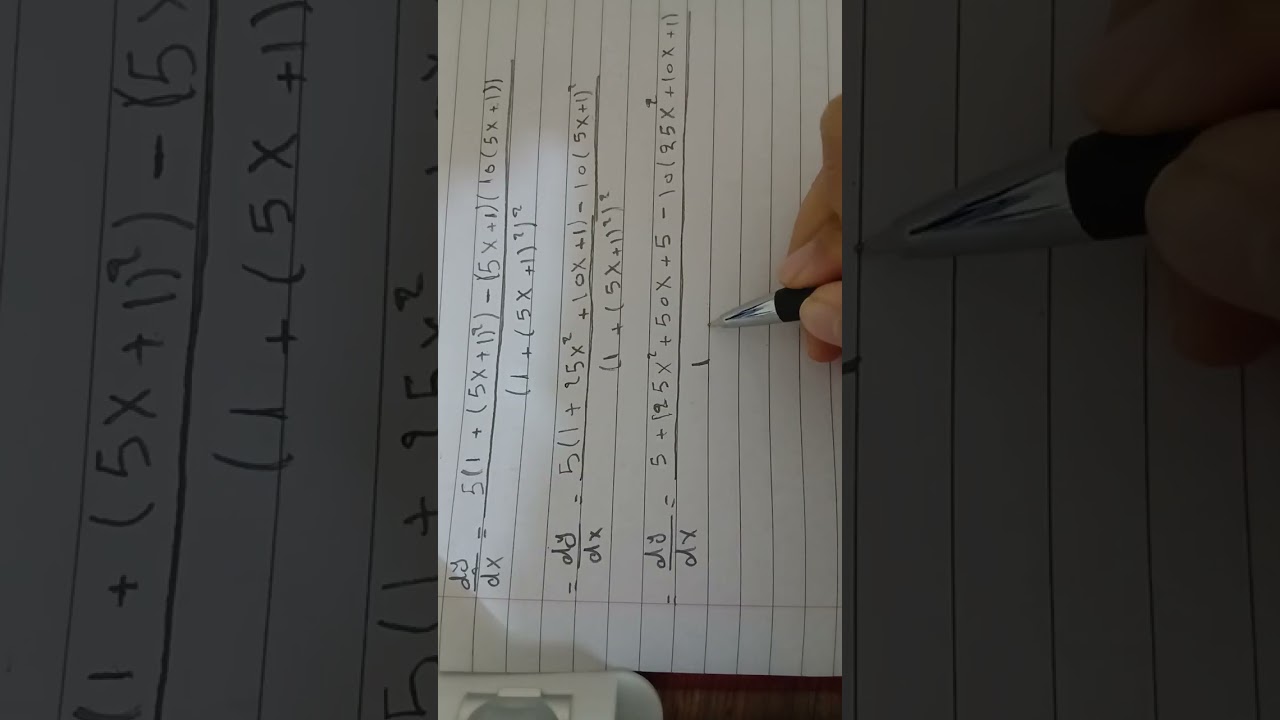 dy/dx = 5(1 + (5x+1)²) - (5x+1)(10(5x+1))
(1 + (5x+1)²)²
= dy/dx = 5(1 + 25x² + 10x + 1) - 10(5x+1)²
(1 + (5x+1)²)²
= dy/dx = 5 + 125x² + 50x + 5 - 10(25x² + 10x + 1)
1